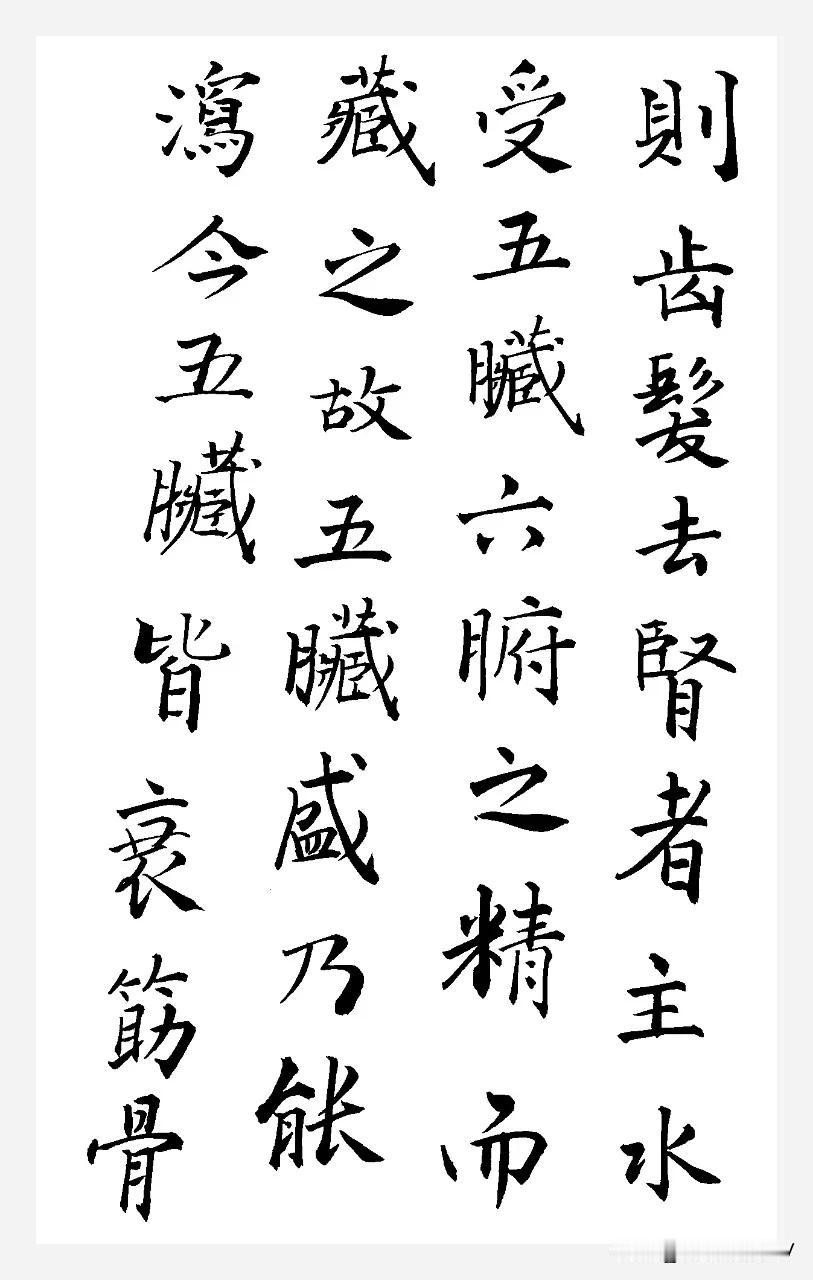 則齿髮去腎者主水
受五臟六腑之精而
藏之故五臟盛乃能
瀉今五臟皆衰筋骨